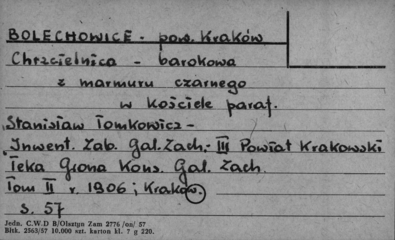 BOLECHOWICE - pow. Kraków.
Chrzcielnica - barokowa
z marmuru czarnego
w kościele paraf.
Stanisław Tomkowicz -
"Inwent. Zab. Gal. Zach. - III Powiat Krakowski
Teka Grona Kons. Gal. Zach.
Tom II r. 1906; Kraków.
s. 57
Jedn. C.W.D B/Olsztyn Zam 2776 /on/ 57
Błsk. 2563/57 10.000 szt. karton kl. 7 g 220.